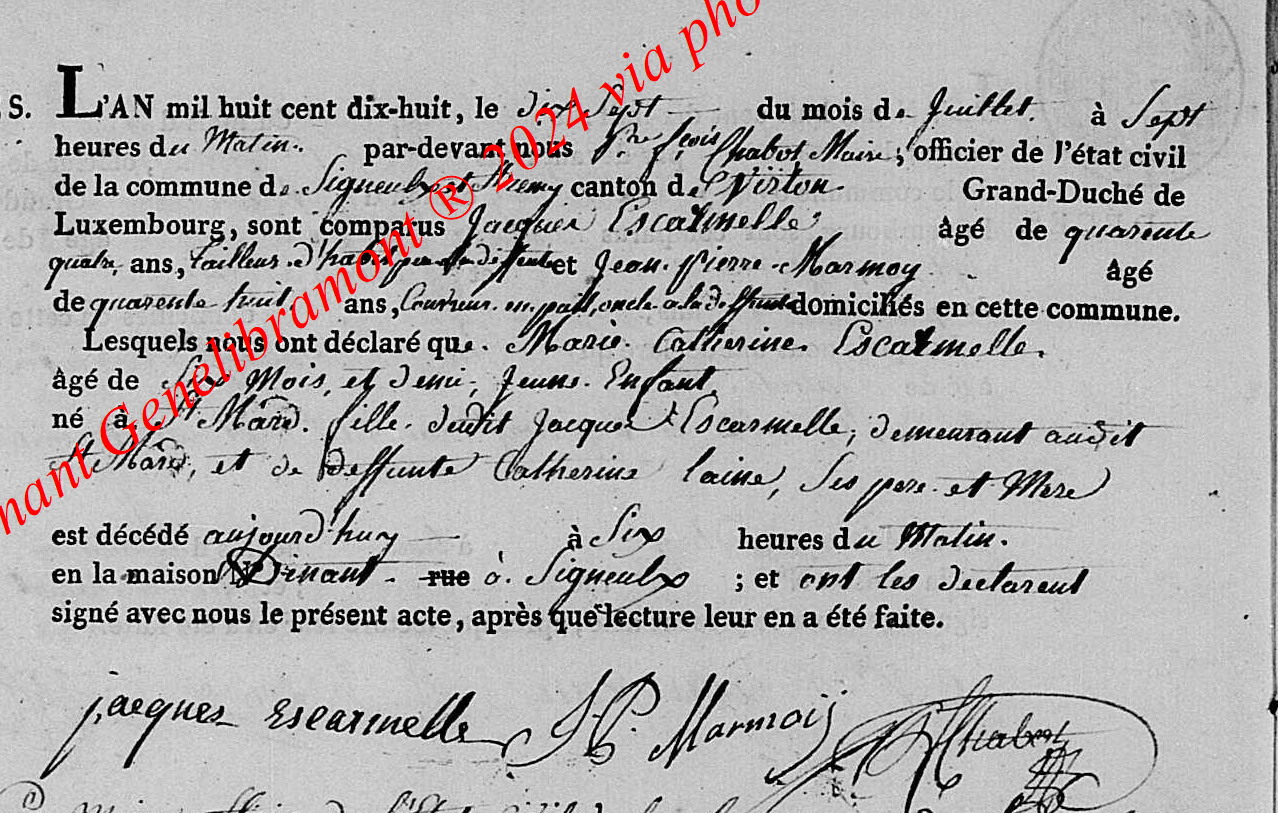 S. L'AN mil huit cent dix-huit, le dix Sept du mois de Juillet. à Sept
heures du Matin. par-devant nous Chabot Maire, officier de l'état civil
de la commune de Signeulx et canton de Virton. Grand-Duché de
Luxembourg, sont comparus Jacques Escarmelle âgé de quarente
quatre ans, tailleur d'habit et Jean pierre Marmoy âgé
de quarente huit ans, Couvreur en paill, oncle a la deffunte domiciliés en cette commune.
Lesquels nous ont déclaré que Marie Catherine Escarmelle.
âgé de Six Mois et demi, Jeune Enfant
né à St Mard. fille dudit Jacques Escarmelle, demeurant audit
St Mard, et de deffunte Catherine laine, Ses pere et Mere
est décédé aujourd'huy à Six heures du Matin.
en la maison N° Dinant. rue à Signeulx ; et ont les declarent
signé avec nous le présent acte, après que lecture leur en a été faite.
jacques Escarmelle J P Marmoij Chabot
nant Genelibramont ® 2024 via pho